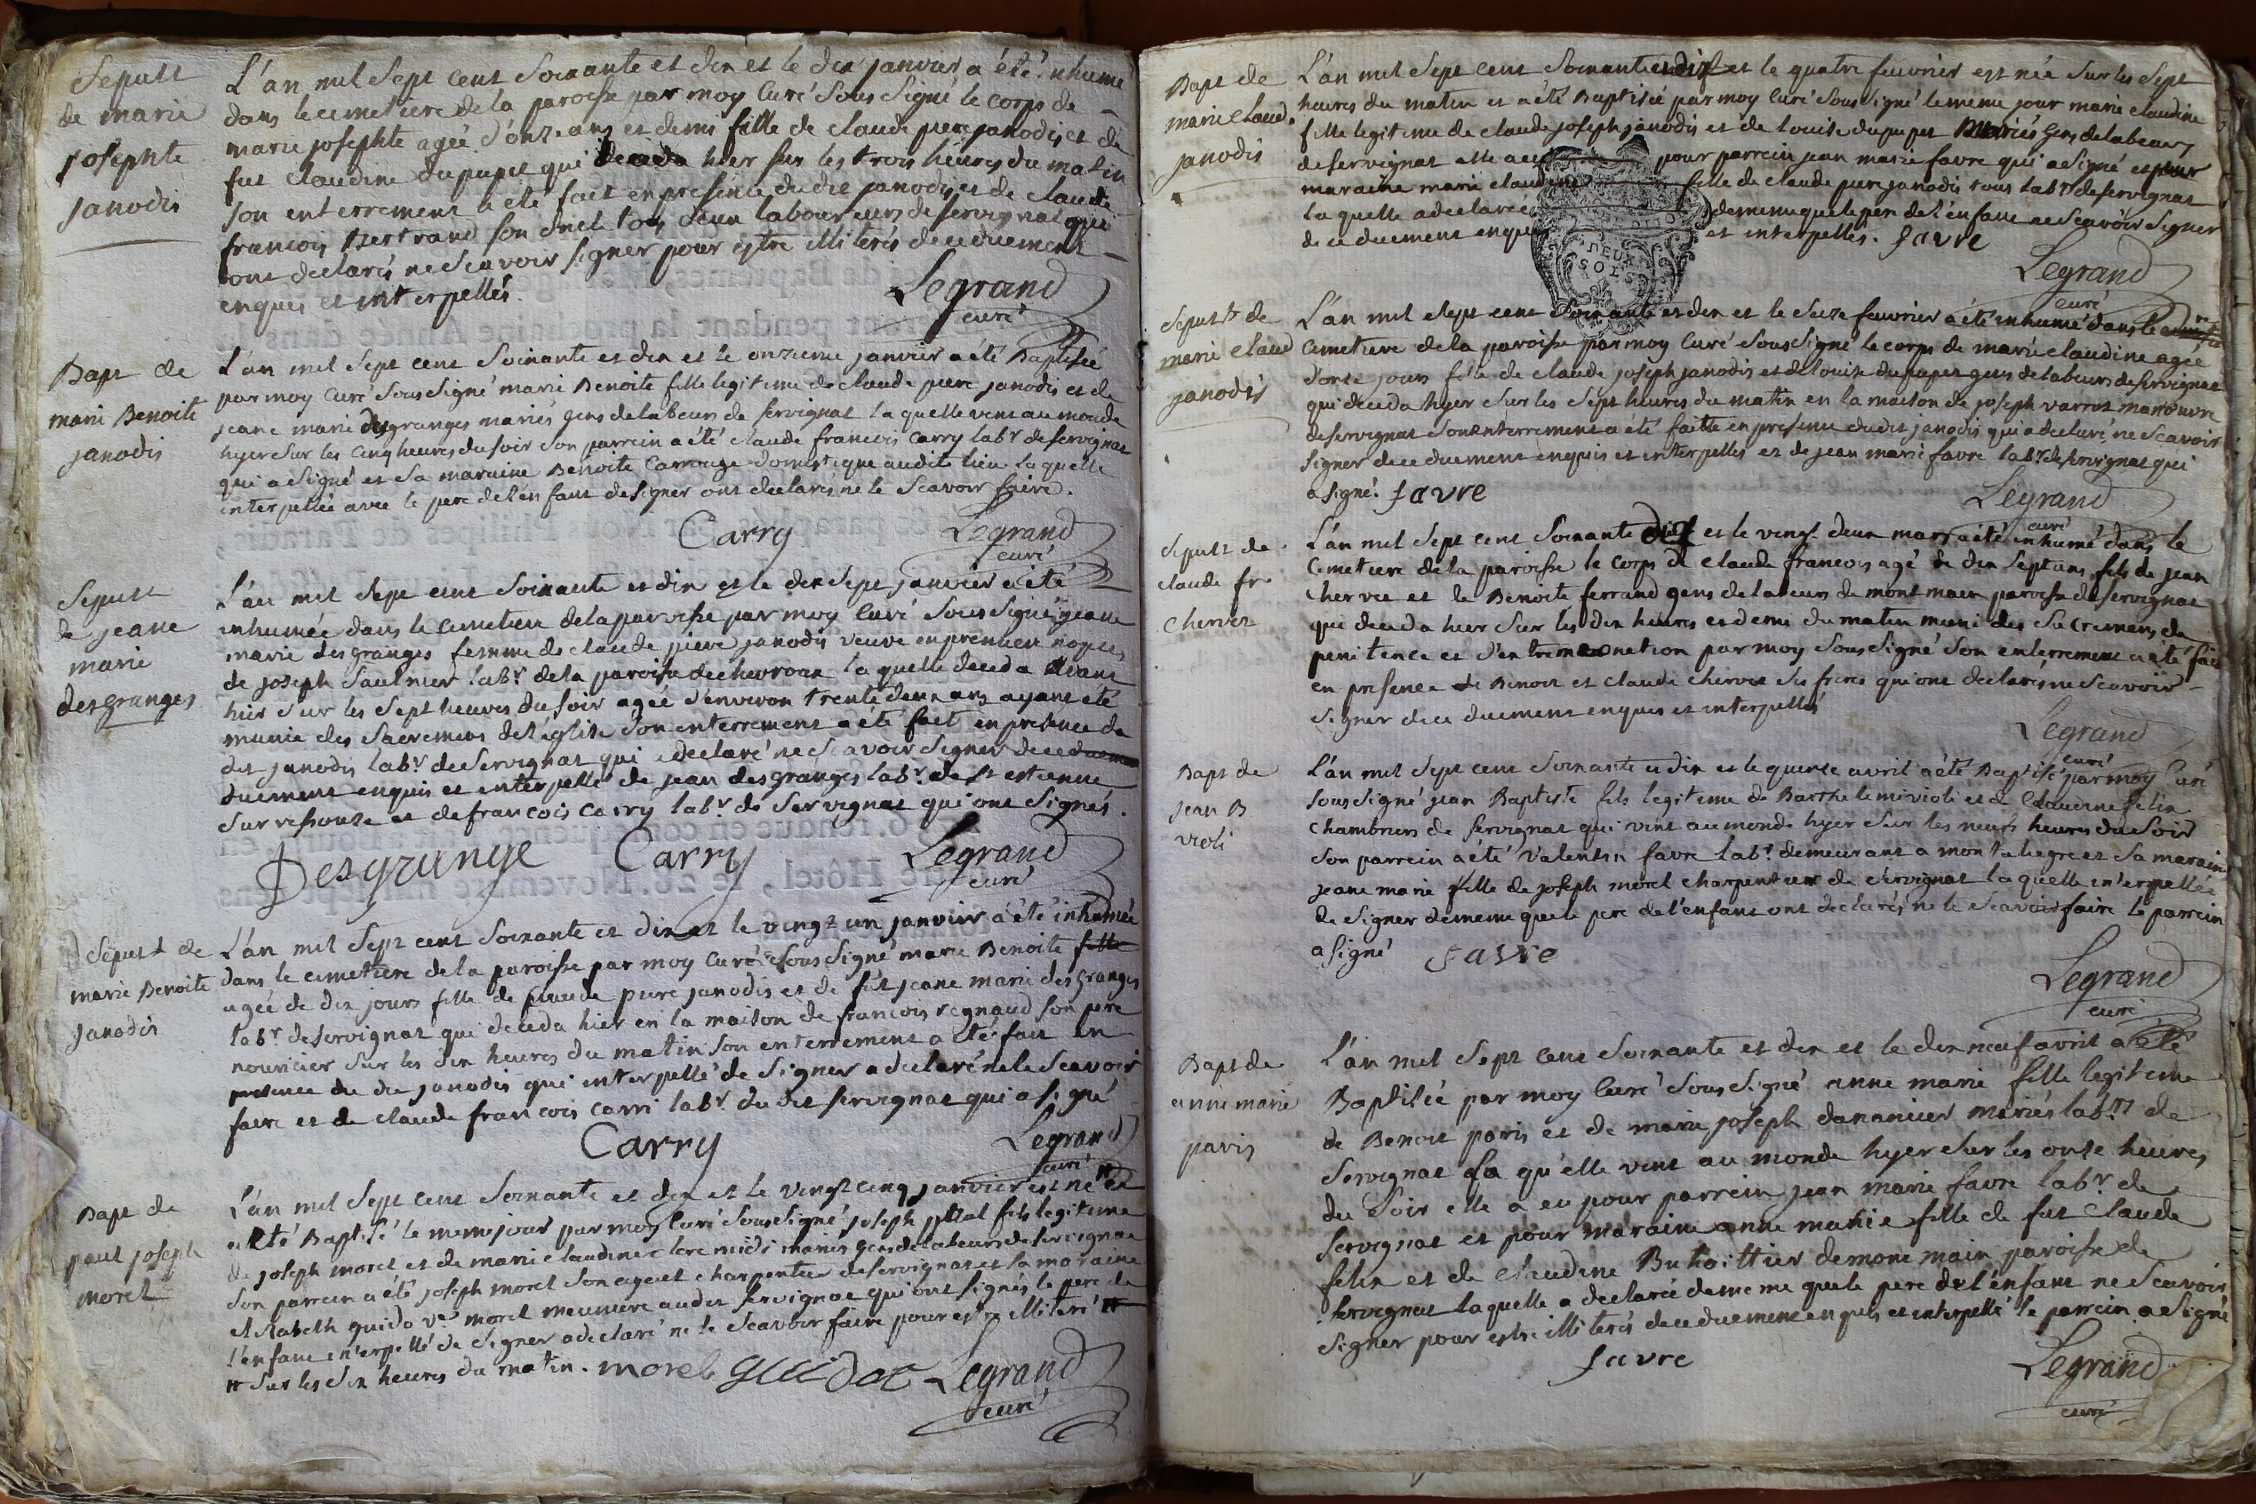 Sepult
de marie
josephte
janodis
L'an mil Sept cent Soixante et dix et le dix janvier a été inhumé
dans le cimetiere de la paroisse par moy Curé Sous Signé le corps de
marie josephte agée d'onze ans et demi fille de claude piere janodis et de
fut Claudine dupupet qui deceda hier sur les trois heures du matin
son enterrement a été fait en presence du dit janodis et de claude
francois Bertrand son oncle tous deux laboureurs de servignat qui
ont declarés ne Scavoir signer pour estre illiterés de ce duement
enquis et interpellés.
Legrand
curé
Bapt de
marie Benoite
janodis
L'an mil Sept cent Soixante et dix et le onzieme janvier a été Baptisée
par moy Curé Sous Signé marie Benoite fille legitime de claude piere janodis et de
jeane marie desgranges mariés gens de labeurs de servignat la quelle vint au monde
hyer sur les cinq heures du soir son parrein a été claude francois Carry labr de servignat
qui a Signé et sa maraine Benoite Carrouge domestique audit lieu la quelle
interpellée avec le pere de l'enfant de signer ont declarés ne le Scavoir faire.
Carry Legrand
curé
Sepult
de jeane
marie
desgranges
L'an mil Sept cent Soixante et dix et le dix Sept janvier a été
inhumée dans le cimetiere de la paroisse par moy Curé Sous Signé jeane
marie des granges femme de claude piere janodis veuve en premiere nopces
de joseph Saulnier labr de la paroisse de chevroux la quelle deceda
hier sur les sept heures du soir agée d'environ trente deux ans ayant été
munie des Sacremens de l'église Son enterrement a été fait en presence du
dit janodis labr de Servignat qui a declaré ne Scavoir Signer de ce
duement enquis et interpellé de jean desgranges labr de St estienne
sur ressouze et de francois Carry labr de Servignat qui ont Signés.
Desgrange Carry Legrand
curé
Sepult de
marie Benoite
janodis
L'an mil Sept cent Soixante et dix et le vingt un janvier a été inhumée
dans le cimetiere de la paroisse par moy curé Sous Signé marie Benoite fille
agée de dix jours fille de claude piere janodis et de fut jeane marie des granges
labr de servignat qui deceda hier en la maison de francois regnaud son pere
nouricier sur les dix heures du matin son enterrement a été fait en
presence du dit janodis qui interpellé de signer a declaré ne le Scavoir
faire et de claude francois carri labr du dit servignat qui a Signé
Carry Legrand
curé
Bapt de
paul joseph
morel
L'an mil Sept cent Soixante et dix et le vingt cinq janvier est né et
a été Baptisé le meme jour par moy Curé Sous Signé joseph fils legitime
de joseph morel et de marie claudine mariés gens de labeurs de servignat
son parrein a été joseph morel son ayeul charpentier de servignat et sa maraine
Elizabeth guido ve morel meuniere audit servignat qui ont signés le pere de
l'enfant interpellé de signer a declaré ne le Scavoir faire pour estre illiteré
sur les dix heures du matin. morel guidot Legrand
curé
Bapt de
marie Claud.
janodis
L'an mil Sept cent Soixante et dix et le quatre feuvrier est née sur les Sept
heures du matin et a été Baptisée par moy Curé Sous Signé le meme jour marie claudine
fille legitime de claude joseph janodis et de louise dupupet Mariés gens de labeurs
de servignat elle a eu pour parrein jean marie favre qui a Signé et pour
maraine marie claudine fille de claude piere janodis tous labrs de servignat
la quelle a declarée de meme que le pere de l'enfant ne Scavoir Signer
de ce duement enquis et interpellés. favre
DEUX
SOL
Legrand
curé
Sepult de
marie Claud
janodis
L'an mil Sept cent Soixante et dix et le Seize feuvrier a été inhumé dans le
Cimetiere de la paroisse par moy Curé Sous Signé le corps de marie claudine agée
d'onze jours fille de claude joseph janodis et de louise dupupet gens de labeurs de servignat
qui deceda hyer sur les Sept heures du matin en la maison de joseph varrot manoeuvre
de servignat son enterrement a été faitte en presence du dit janodis qui a declaré ne Scavoir
Signer de ce duement enquis et interpellé et de jean marie favre labr de servignat qui
a Signé. favre
Legrand
curé
Sepult de
claude fr.
Chervet
L'an mil Sept cent Soixante dix et le vingt deux mars a été inhumé dans le
Cimetiere de la paroisse le corps de claude francois agé de dix Sept ans fils de jean
Chervet et de Benoite ferrand gens de labeurs de mont main paroisse de servignat
qui deceda hier sur les dix heures et demi du matin muni des Sacremens de
penitence et d'extremeonction par moy Sous Signé son enterrement a été fait
en presence de Benoit et claude chervet ses freres qui ont declarés ne Scavoir
Signer de ce duement enquis et interpellés
Legrand
curé
Bapt de
jean B
violi
L'an mil Sept cent Soixante et dix et le quinze avril a été Baptisé par moy Curé
sous signé jean Baptiste fils legitime de Barthelemi violi et de Claudine felix
chambriers de servignat qui vint au monde hyer sur les neufs heures du soir
son parrein a été Valentin favre labr demeurant a montalegre et sa maraine
jeane marie fille de joseph morel charpentier de servignat la quelle interpellée
de signer de meme que le pere de l'enfant ont declarés ne le scavoir faire le parrein
a Signé favre
Legrand
curé
Bapt de
anne marie
paris
L'an mil Sept cent Soixante et dix et le dix neuf avril a été
Baptisée par moy Curé Sous Signé anne marie fille legitime
de Benoit paris et de marie joseph dananier mariés labrs de
Servignat la qu'elle vint au monde hyer sur les onze heures
du Soir elle a eu pour parrein jean marie favre labr de
servignat et pour maraine anne marie fille de fut claude
felix et de claudine Buhoittier de mont main paroisse de
servignat la quelle a declarée de meme que le pere de l'enfant ne Scavoir
signer pour estre illiterés de ce duement enquis et interpellé le parrein a Signé
favre Legrand
curé